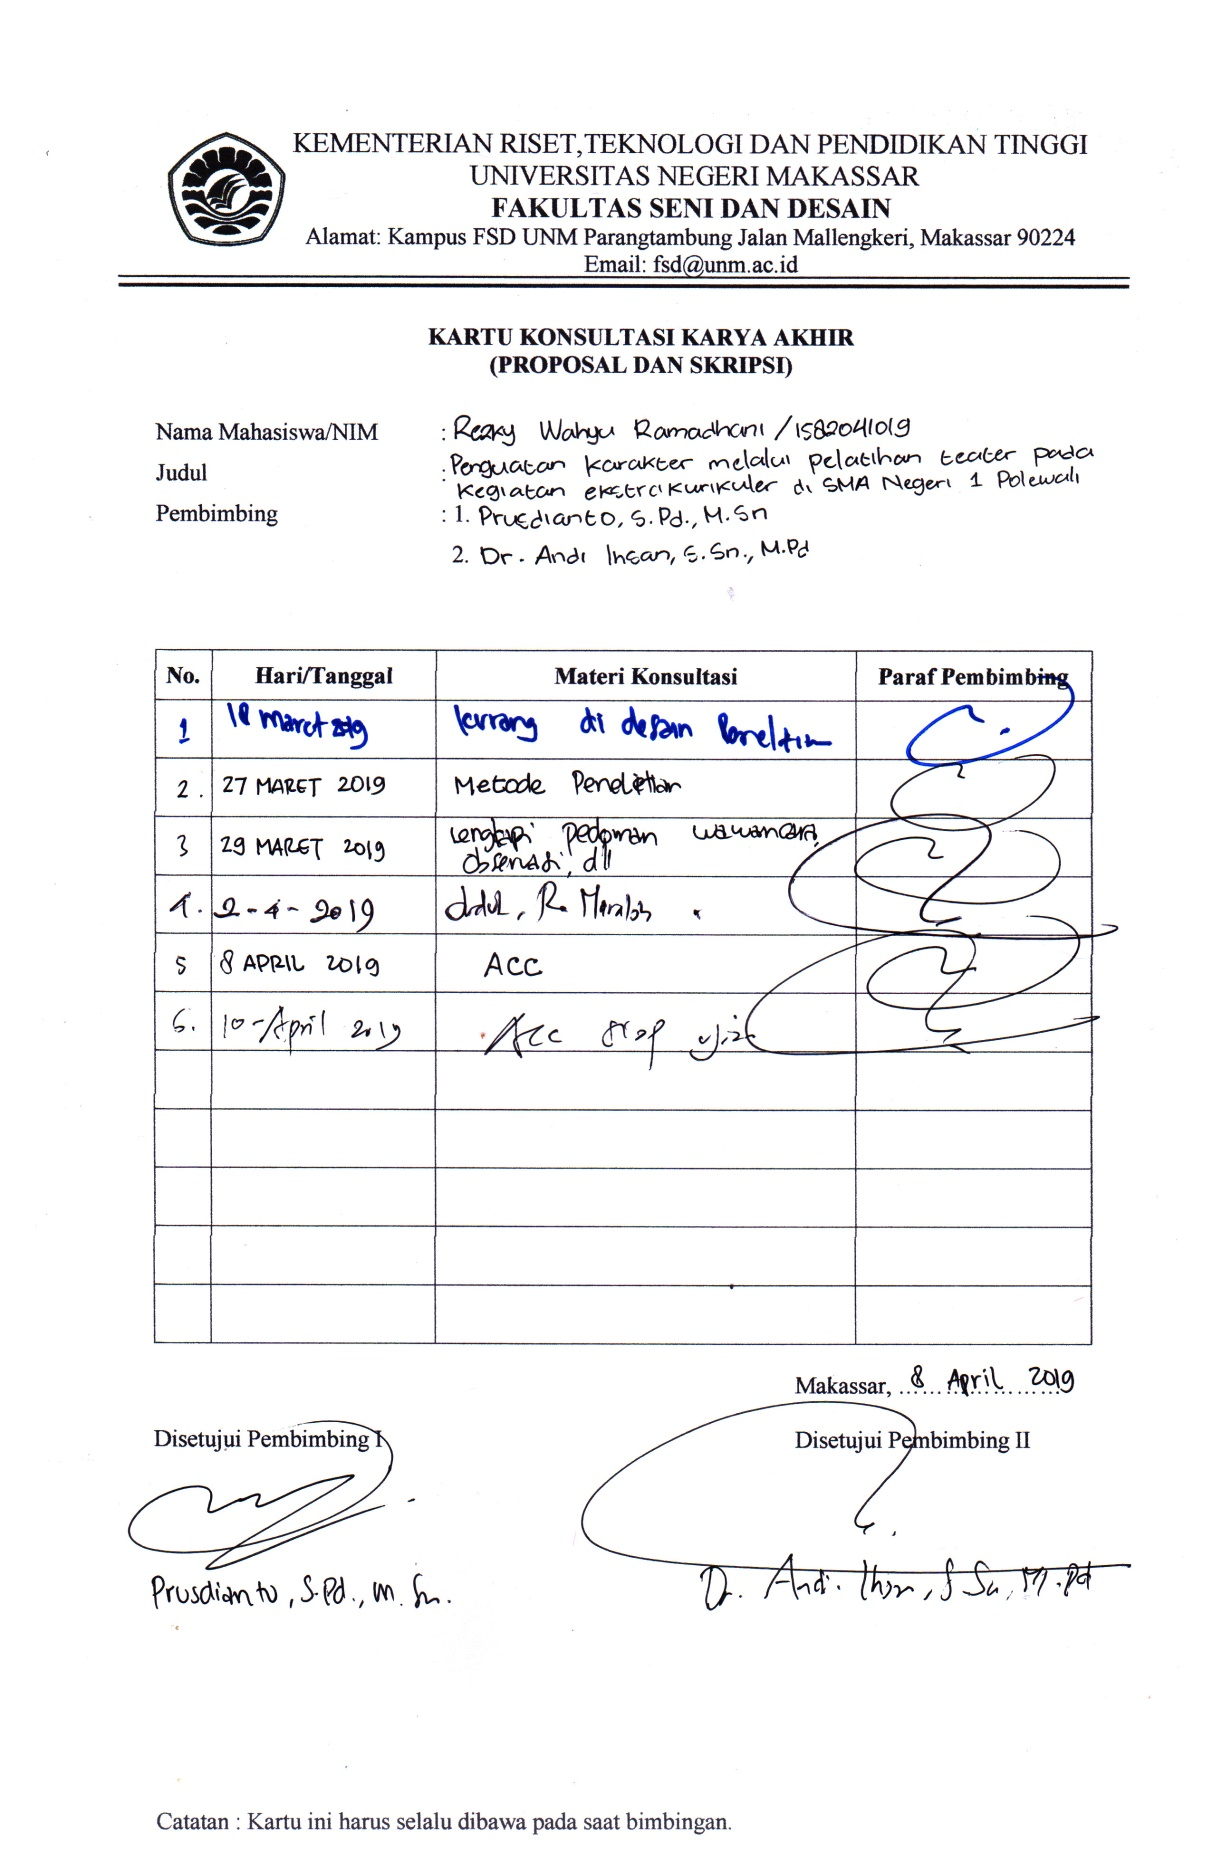 KEMENTERIAN RISET,TEKNOLOGI DAN PENDIDIKAN TINGGI
UNIVERSITAS NEGERI MAKASSAR
FAKULTAS SENI DAN DESAIN
Alamat: Kampus FSD UNM Parangtambung Jalan Mallengkeri, Makassar 90224
Email: fsd@unm.ac.id
KARTU KONSULTASI KARYA AKHIR
(PROPOSAL DAN SKRIPSI)
Nama Mahasiswa/NIM : Rezky Wahyu Ramadhani / 1582041019
Judul : Penguatan karakter melalui pelatihan teater pada
kegiatan ekstrakurikuler di SMA Negeri 1 Polewali
Pembimbing : 1. Prusdianto, S.Pd., M.Sn
2. Dr. Andi Ihsan, S.Sn., M.Pd
No. Hari/Tanggal Materi Konsultasi Paraf Pembimbing
1 18 Maret 2019 kurang di desain
2. 27 MARET 2019 Metode Penelitian
3 29 MARET 2019 Lengkapi pedoman wawancara,
observasi, dll
4. 2-4-2019 R. Masalah
5 8 APRIL 2019 ACC
6. 10-April 2019 Acc siap ujian
Makassar, 8 April 2019
Disetujui Pembimbing I Disetujui Pembimbing II
Prusdianto, S.Pd., M.Sn. Dr. Andi Ihsan, S.Sn, M.Pd
Catatan : Kartu ini harus selalu dibawa pada saat bimbingan.